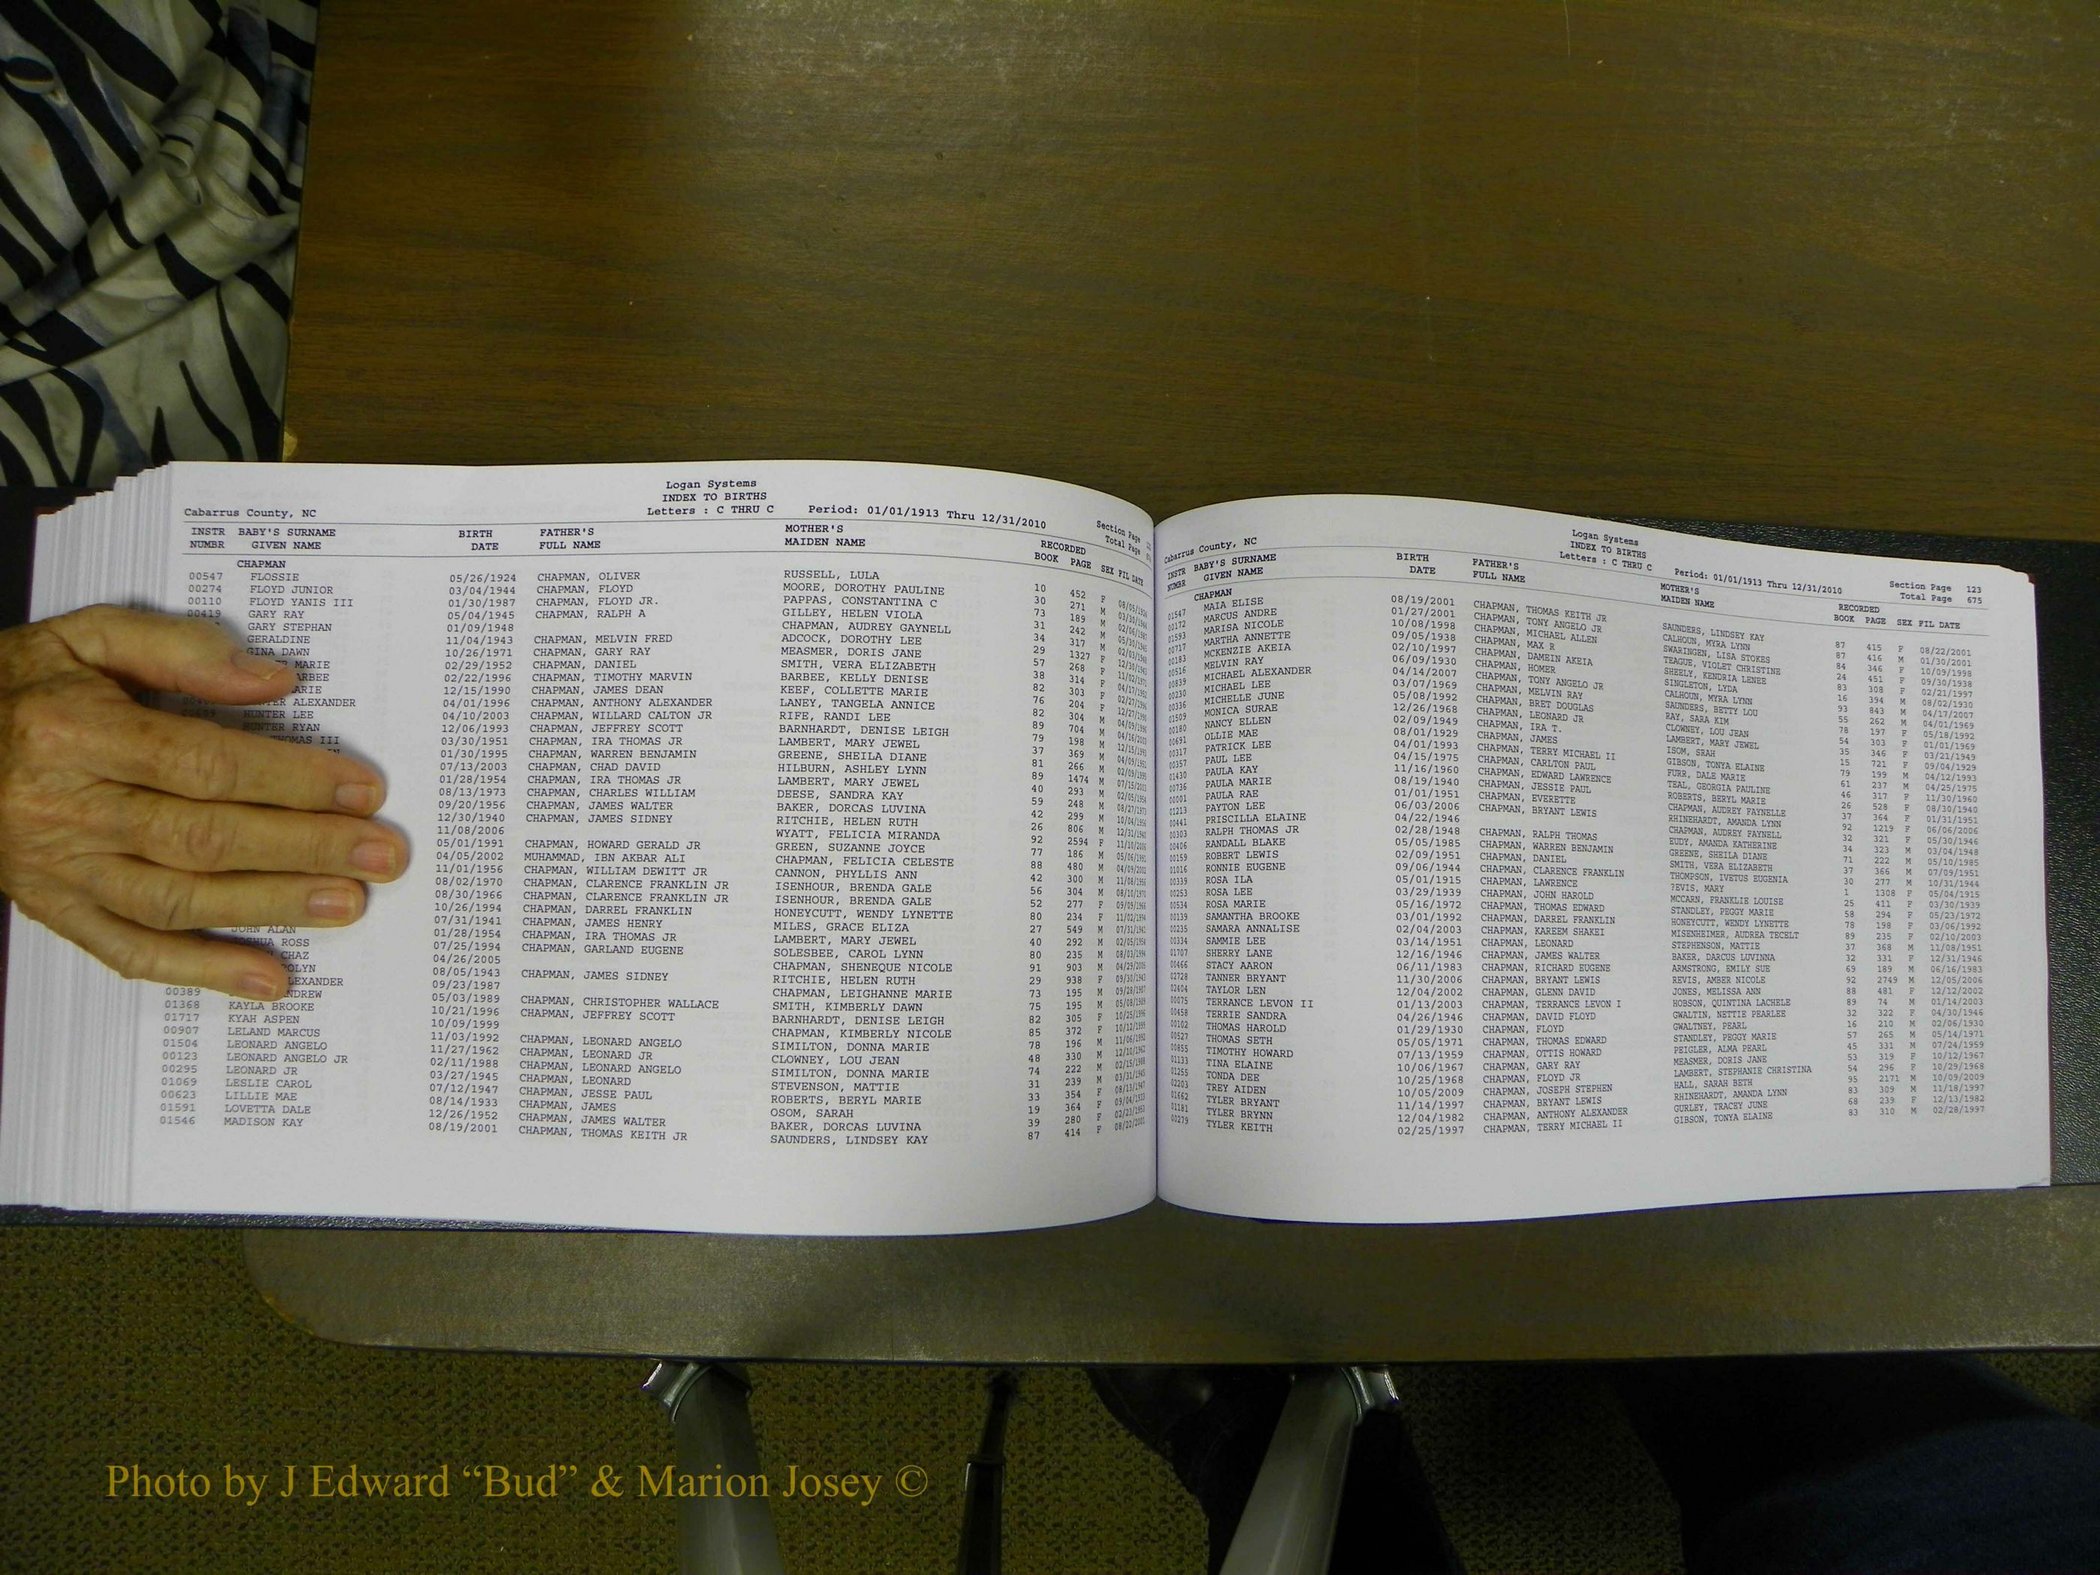 Logan Systems
INDEX TO BIRTHS
Cabarrus County, NC Letters : C THRU C Period: 01/01/1913 Thru 12/31/2010 Section Page
Total Page
INSTR BABY'S SURNAME BIRTH FATHER'S MOTHER'S RECORDED
NUMBR GIVEN NAME DATE FULL NAME MAIDEN NAME BOOK PAGE SEX FIL DATE
CHAPMAN
00547 FLOSSIE 05/26/1924 CHAPMAN, OLIVER RUSSELL, LULA 10 452 F
00274 FLOYD JUNIOR 03/04/1944 CHAPMAN, FLOYD MOORE, DOROTHY PAULINE 30 271 M
00110 FLOYD YANIS III 01/30/1987 CHAPMAN, FLOYD JR. PAPPAS, CONSTANTINA C 73 189 M
00419 GARY RAY 05/04/1945 CHAPMAN, RALPH A GILLEY, HELEN VIOLA 31 242 M
GARY STEPHAN 01/09/1948 CHAPMAN, AUDREY GAYNELL 34 317 M
GERALDINE 11/04/1943 CHAPMAN, MELVIN FRED ADCOCK, DOROTHY LEE 29 1327 F
GINA DAWN 10/26/1971 CHAPMAN, GARY RAY MEASMER, DORIS JANE 57 268 F
MARIE 02/29/1952 CHAPMAN, DANIEL SMITH, VERA ELIZABETH 38 314 F
02/22/1996 CHAPMAN, TIMOTHY MARVIN BARBEE, KELLY DENISE 82 303 F
12/15/1990 CHAPMAN, JAMES DEAN KEEF, COLLETTE MARIE 76 204 F
ALEXANDER 04/01/1996 CHAPMAN, ANTHONY ALEXANDER LANEY, TANGELA ANNICE 82 304 M
HUNTER LEE 04/10/2003 CHAPMAN, WILLARD CALTON JR RIFE, RANDI LEE 89 704 M
HUNTER RYAN 12/06/1993 CHAPMAN, JEFFREY SCOTT BARNHARDT, DENISE LEIGH 79 198 M
THOMAS III 03/30/1951 CHAPMAN, IRA THOMAS JR LAMBERT, MARY JEWEL 37 369 M
01/30/1995 CHAPMAN, WARREN BENJAMIN GREENE, SHEILA DIANE 81 266 M
07/13/2003 CHAPMAN, CHAD DAVID HILBURN, ASHLEY LYNN 89 1474 M
01/28/1954 CHAPMAN, IRA THOMAS JR LAMBERT, MARY JEWEL 40 293 M
08/13/1973 CHAPMAN, CHARLES WILLIAM DEESE, SANDRA KAY 59 248 M
09/20/1956 CHAPMAN, JAMES WALTER BAKER, DORCAS LUVINA 42 299 M
12/30/1940 CHAPMAN, JAMES SIDNEY RITCHIE, HELEN RUTH 26 806 M
11/08/2006 WYATT, FELICIA MIRANDA 92 2594 F
05/01/1991 CHAPMAN, HOWARD GERALD JR GREEN, SUZANNE JOYCE 77 186 M
04/05/2002 MUHAMMAD, IBN AKBAR ALI CHAPMAN, FELICIA CELESTE 88 480 M
11/01/1956 CHAPMAN, WILLIAM DEWITT JR CANNON, PHYLLIS ANN 42 300 M
08/02/1970 CHAPMAN, CLARENCE FRANKLIN JR ISENHOUR, BRENDA GALE 56 304 M
08/30/1966 CHAPMAN, CLARENCE FRANKLIN JR ISENHOUR, BRENDA GALE 52 277 F
10/26/1994 CHAPMAN, DARREL FRANKLIN HONEYCUTT, WENDY LYNETTE 80 234 F
07/31/1941 CHAPMAN, JAMES HENRY MILES, GRACE ELIZA 27 549 M
JOHN ALAN 01/28/1954 CHAPMAN, IRA THOMAS JR LAMBERT, MARY JEWEL 40 292 M
JOSHUA ROSS 07/25/1994 CHAPMAN, GARLAND EUGENE SOLESBEE, CAROL LYNN 80 235 M
CHAZ 04/26/2005 CHAPMAN, SHENEQUE NICOLE 91 903 M
08/05/1943 CHAPMAN, JAMES SIDNEY RITCHIE, HELEN RUTH 29 938 F
09/23/1987 CHAPMAN, LEIGHANNE MARIE 73 195 M
00389 05/03/1989 CHAPMAN, CHRISTOPHER WALLACE SMITH, KIMBERLY DAWN 75 195 M
01368 KAYLA BROOKE 10/21/1996 CHAPMAN, JEFFREY SCOTT BARNHARDT, DENISE LEIGH 82 305 F
01717 KYAH ASPEN 10/09/1999 CHAPMAN, KIMBERLY NICOLE 85 372 F
00907 LELAND MARCUS 11/03/1992 CHAPMAN, LEONARD ANGELO SIMILTON, DONNA MARIE 78 196 M
01504 LEONARD ANGELO 11/27/1962 CHAPMAN, LEONARD JR CLOWNEY, LOU JEAN 48 330 M
00123 LEONARD ANGELO JR 02/11/1988 CHAPMAN, LEONARD ANGELO SIMILTON, DONNA MARIE 74 222 M
00295 LEONARD JR 03/27/1945 CHAPMAN, LEONARD STEVENSON, MATTIE 31 239 M
01069 LESLIE CAROL 07/12/1947 CHAPMAN, JESSE PAUL ROBERTS, BERYL MARIE 33 354 F
00623 LILLIE MAE 08/14/1933 CHAPMAN, JAMES OSOM, SARAH 19 364 F
01591 LOVETTA DALE 12/26/1952 CHAPMAN, JAMES WALTER BAKER, DORCAS LUVINA 39 280 F
01546 MADISON KAY 08/19/2001 CHAPMAN, THOMAS KEITH JR SAUNDERS, LINDSEY KAY 87 414 F 08/22/2001
Logan Systems
INDEX TO BIRTHS
Cabarrus County, NC Letters : C THRU C Period: 01/01/1913 Thru 12/31/2010 Section Page 123
Total Page 675
INSTR BABY'S SURNAME BIRTH FATHER'S MOTHER'S RECORDED
NUMBR GIVEN NAME DATE FULL NAME MAIDEN NAME BOOK PAGE SEX FIL DATE
CHAPMAN
01547 MAIA ELISE 08/19/2001 CHAPMAN, THOMAS KEITH JR SAUNDERS, LINDSEY KAY 87 415 F 08/22/2001
00172 MARCUS ANDRE 01/27/2001 CHAPMAN, TONY ANGELO JR CALHOUN, MYRA LYNN 87 416 M 01/30/2001
01593 MARISA NICOLE 10/08/1998 CHAPMAN, MICHAEL ALLEN SWARINGEN, LISA STOKES 84 346 F 10/09/1998
00717 MARTHA ANNETTE 09/05/1938 CHAPMAN, MAX R TEAGUE, VIOLET CHRISTINE 24 451 F 09/30/1938
00183 MCKENZIE AKEIA 02/10/1997 CHAPMAN, DAMEIN AKEIA SHEELY, KENDRIA LENEE 83 308 F 02/21/1997
00516 MELVIN RAY 06/09/1930 CHAPMAN, HOMER SINGLETON, LYDA 16 394 M 08/02/1930
00839 MICHAEL ALEXANDER 04/14/2007 CHAPMAN, TONY ANGELO JR CALHOUN, MYRA LYNN 93 843 M 04/17/2007
00230 MICHAEL LEE 03/07/1969 CHAPMAN, MELVIN RAY SAUNDERS, BETTY LOU 55 262 M 04/01/1969
00336 MICHELLE JUNE 05/08/1992 CHAPMAN, BRET DOUGLAS RAY, SARA KIM 78 197 F 05/18/1992
01509 MONICA SURAE 12/26/1968 CHAPMAN, LEONARD JR CLOWNEY, LOU JEAN 54 303 F 01/01/1969
00180 NANCY ELLEN 02/09/1949 CHAPMAN, IRA T. LAMBERT, MARY JEWEL 35 346 F 03/21/1949
00691 OLLIE MAE 08/01/1929 CHAPMAN, JAMES ISOM, SRAH 15 721 F 09/04/1929
00317 PATRICK LEE 04/01/1993 CHAPMAN, TERRY MICHAEL II GIBSON, TONYA ELAINE 79 199 M 04/12/1993
00357 PAUL LEE 04/15/1975 CHAPMAN, CARLTON PAUL FURR, DALE MARIE 61 237 M 04/25/1975
01430 PAULA KAY 11/16/1960 CHAPMAN, EDWARD LAWRENCE TEAL, GEORGIA PAULINE 46 317 F 11/30/1960
00736 PAULA MARIE 08/19/1940 CHAPMAN, JESSIE PAUL ROBERTS, BERYL MARIE 26 528 F 08/30/1940
00001 PAULA RAE 01/01/1951 CHAPMAN, EVERETTE CHAPMAN, AUDREY FAYNELLE 37 364 F 01/31/1951
01213 PAYTON LEE 06/03/2006 CHAPMAN, BRYANT LEWIS RHINEHARDT, AMANDA LYNN 92 1219 F 06/06/2006
00441 PRISCILLA ELAINE 04/22/1946 CHAPMAN, AUDREY FAYNELL 32 321 F 05/30/1946
00303 RALPH THOMAS JR 02/28/1948 CHAPMAN, RALPH THOMAS EUDY, AMANDA KATHERINE 34 323 M 03/04/1948
00406 RANDALL BLAKE 05/05/1985 CHAPMAN, WARREN BENJAMIN GREENE, SHEILA DIANE 71 222 M 05/10/1985
00159 ROBERT LEWIS 02/09/1951 CHAPMAN, DANIEL SMITH, VERA ELIZABETH 37 366 M 07/09/1951
01016 RONNIE EUGENE 09/06/1944 CHAPMAN, CLARENCE FRANKLIN THOMPSON, IVETUS EUGENIA 30 277 M 10/31/1944
00339 ROSA ILA 05/01/1915 CHAPMAN, LAWRENCE ?EVIS, MARY 1 1308 F 05/04/1915
00253 ROSA LEE 03/29/1939 CHAPMAN, JOHN HAROLD MCCARN, FRANKLIE LOUISE 25 411 F 03/30/1939
00534 ROSA MARIE 05/16/1972 CHAPMAN, THOMAS EDWARD STANDLEY, PEGGY MARIE 58 294 F 05/23/1972
00139 SAMANTHA BROOKE 03/01/1992 CHAPMAN, DARREL FRANKLIN HONEYCUTT, WENDY LYNETTE 78 198 F 03/06/1992
00235 SAMARA ANNALISE 02/04/2003 CHAPMAN, KAREEM SHAKEI MISENHEIMER, AUDREA TECELT 89 235 F 02/10/2003
00334 SAMMIE LEE 03/14/1951 CHAPMAN, LEONARD STEPHENSON, MATTIE 37 368 M 11/08/1951
01707 SHERRY LANE 12/16/1946 CHAPMAN, JAMES WALTER BAKER, DARCUS LUVINNA 32 331 F 12/31/1946
00466 STACY AARON 06/11/1983 CHAPMAN, RICHARD EUGENE ARMSTRONG, EMILY SUE 69 189 M 06/16/1983
02728 TANNER BRYANT 11/30/2006 CHAPMAN, BRYANT LEWIS REVIS, AMBER NICOLE 92 2749 M 12/05/2006
02404 TAYLOR LEN 12/04/2002 CHAPMAN, GLENN DAVID JONES, MELISSA ANN 88 481 F 12/12/2002
00075 TERRANCE LEVON II 01/13/2003 CHAPMAN, TERRANCE LEVON I HOBSON, QUINTINA LACHELE 89 74 M 01/14/2003
00458 TERRIE SANDRA 04/26/1946 CHAPMAN, DAVID FLOYD GWALTIN, NETTIE PEARLEE 32 322 F 04/30/1946
00102 THOMAS HAROLD 01/29/1930 CHAPMAN, FLOYD GWALTNEY, PEARL 16 210 M 02/06/1930
00527 THOMAS SETH 05/05/1971 CHAPMAN, THOMAS EDWARD STANDLEY, PEGGY MARIE 57 265 M 05/14/1971
00855 TIMOTHY HOWARD 07/13/1959 CHAPMAN, OTTIS HOWARD PEIGLER, ALMA PEARL 45 331 M 07/24/1959
01133 TINA ELAINE 10/06/1967 CHAPMAN, GARY RAY MEASMER, DORIS JANE 53 319 F 10/12/1967
01255 TONDA DEE 10/25/1968 CHAPMAN, FLOYD JR LAMBERT, STEPHANIE CHRISTINA 54 296 F 10/29/1968
02203 TREY AIDEN 10/05/2009 CHAPMAN, JOSEPH STEPHEN HALL, SARAH BETH 95 2171 M 10/09/2009
01662 TYLER BRYANT 11/14/1997 CHAPMAN, BRYANT LEWIS RHINEHARDT, AMANDA LYNN 83 309 M 11/18/1997
01181 TYLER BRYNN 12/04/1982 CHAPMAN, ANTHONY ALEXANDER GURLEY, TRACEY JUNE 68 239 F 12/13/1982
00279 TYLER KEITH 02/25/1997 CHAPMAN, TERRY MICHAEL II GIBSON, TONYA ELAINE 83 310 M 02/28/1997
Photo by J Edward “Bud” & Marion Josey ©